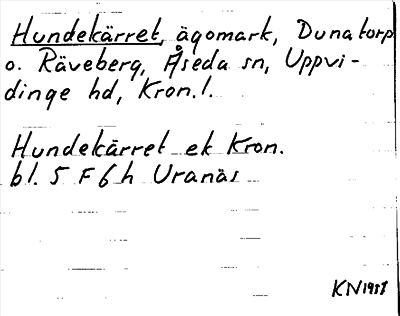 Hundekärret, ägomark, Dunatorp
o. Räveberg, Åseda sn, Uppvi-
dinge hd, Kron.l.
Hundekärret ek Kron.
bl. 5 F 6 h Uranäs
KN